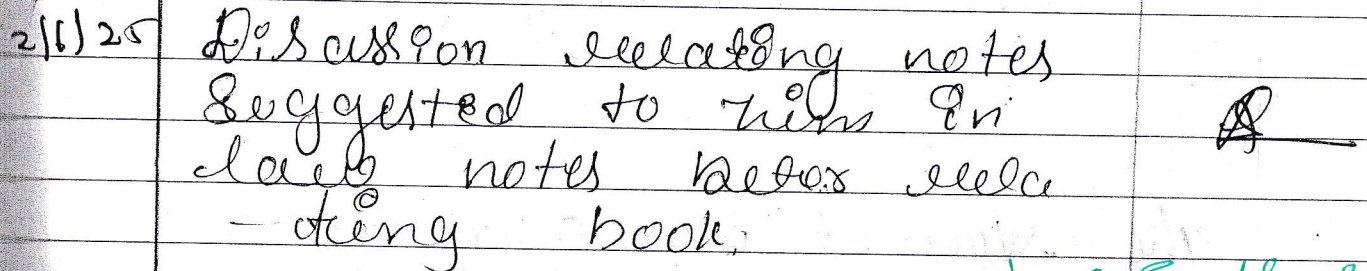 2/6/25 Disassion relating notes
Suggested to him in
notes refer rela
-ting book.